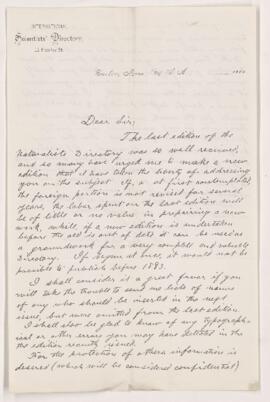 INTERNATIONAL
Scientists' Directory,
Boston, Mass. U.S.A. 188
Dear Sir;
The last edition of the
Naturalists Directory was so well received,
and so many have urged me to make a new
edition that I have taken the liberty of addressing
you on the subject. If, as at first contemplated,
the foreign portion is not revised for several
years, the labor spent on the last edition will
be of little or no value in preparing a new
work, while, if a new edition is undertaken
before the old is out of date it can be used as
a groundwork for a very complete and valuable
Directory. If begun at once, it would not be
possible to publish before 1883.
I shall consider it a great favor if you
will take the trouble to send me lists of names
of any who should be inserted in the next
issue, but were omitted from the last edition.
I shall also be glad to know of any typograph-
ical or other errors you may have detected in
the edition recently issued.
For the protection of others information is
desired (which will be considered confidential)